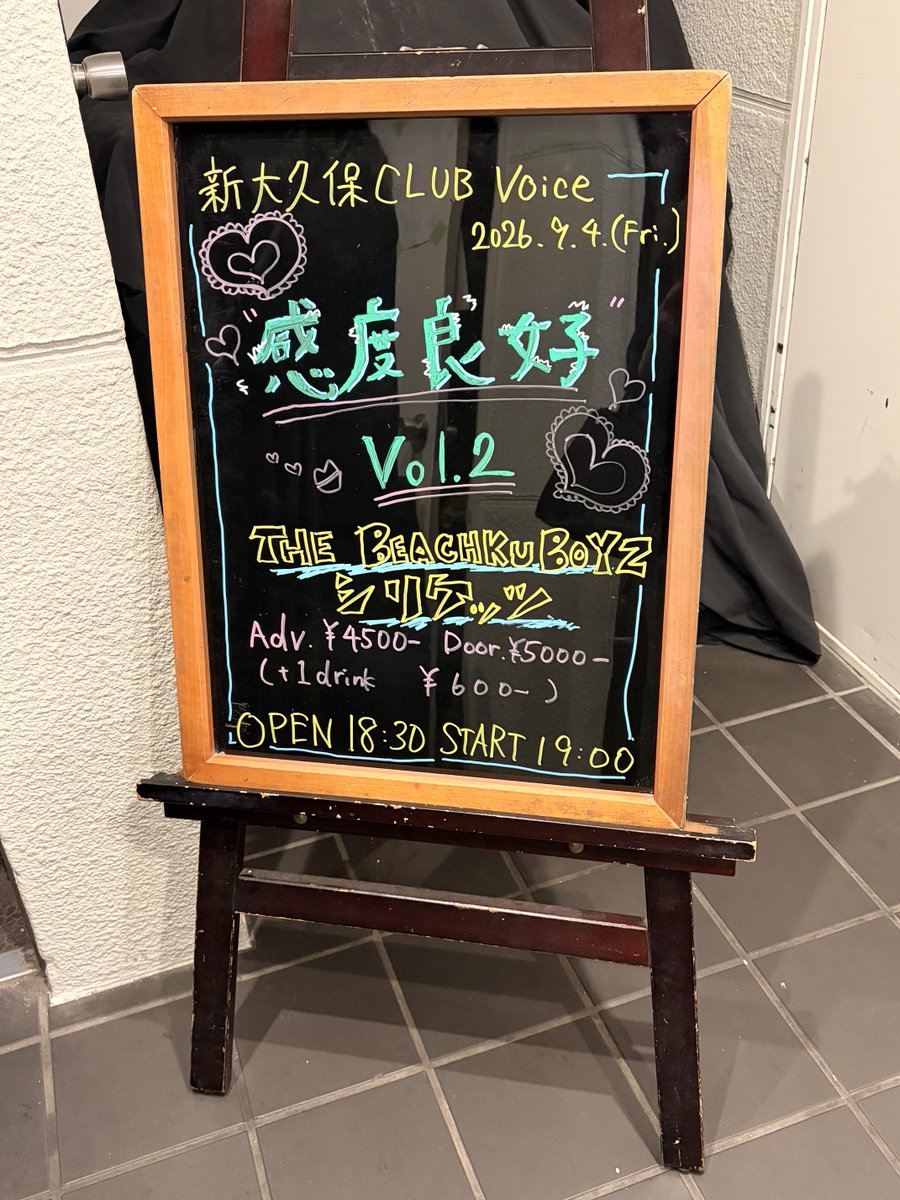 新大久保CLUB Voice
2026.9.4.(Fri.)
"感度良好"
Vol.2
THE BEACHKU BOYZ
シリケッツ
Adv.¥4500- Door.¥5000-
(+1drink ¥600-)
OPEN 18:30 START 19:00